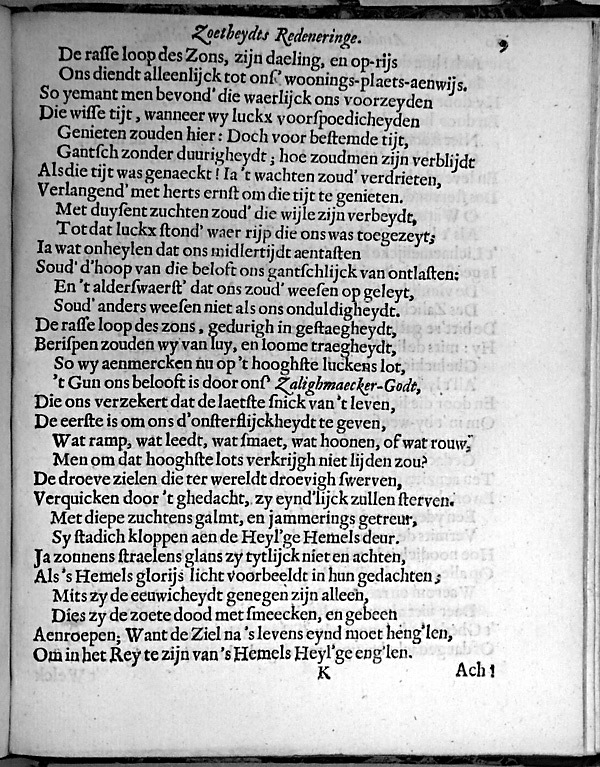 Zoetheydts Redeneringe. 9
De rasse loop des Zons, zijn daeling, en op-rijs
Ons diendt alleenlijck tot ons' woonings-plaets-aenwijs.
So yemant men bevond' die waerlijck ons voorzeyden
Die wisse tijt, wanneer wy luckx voorspoedicheyden
Genieten zouden hier: Doch voor bestemde tijt,
Gantsch zonder duurigheydt; hoe zoudmen zijn verblijdt
Als die tijt was genaeckt! Ia 't wachten zoud' verdrieten,
Verlangend' met herts ernst om die tijt te genieten.
Met duysent zuchten zoud' die wijle zijn verbeydt,
Tot dat luckx stond' waer rijp die ons was toegezeyt;
Ia wat onheylen dat ons midlertijdt aentasten
Soud' d'hoop van die beloft ons gantschlijck van ontlasten:
En 't alderswaerst' dat ons zoud' weesen op geleyt,
Soud' anders weesen niet als ons onduldigheydt.
De rasse loop des zons, gedurigh in gestaegheydt,
Berispen zouden wy van luy, en loome traegheydt,
So wy aenmercken nu op 't hooghste luckens lot,
't Gun ons belooft is door ons' Zalighmaecker-Godt,
Die ons verzekert dat de laetste snick van 't leven,
De eerste is om ons d'onsterflijckheydt te geven,
Wat ramp, wat leedt, wat smaet, wat hoonen, of wat rouw,
Men om dat hooghste lots verkrijgh niet lijden zou?
De droeve zielen die ter wereldt droevigh swerven,
Verquicken door 't ghedacht, zy eynd'lijck zullen sterven.
Met diepe zuchtens galmt, en jammerings getreur,
Sy stadich kloppen aen de Heyl'ge Hemels deur.
Ja zonnens straelens glans zy tytlijck niet en achten,
Als 's Hemels glorijs licht voorbeeldt in hun gedachten;
Mits zy de eeuwicheydt genegen zijn alleen,
Dies zy de zoete dood met smeecken, en gebeen
Aenroepen; Want de Ziel na 's levens eynd moet heng'len,
Om in het Rey te zijn van 's Hemels Heyl'ge eng'len.
K Ach!